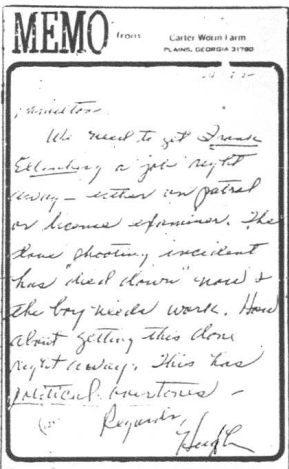 MEMO from
Carter Worm Farm
PLAINS, GEORGIA 31780
Hamilton
We need to get Frank
a job right
away – either on patrol
or license examiner. The
dove shooting incident
has "died down" now &
the boy needs work. How
about getting this done
right away. This has
political overtones –
Regards,
Hugh